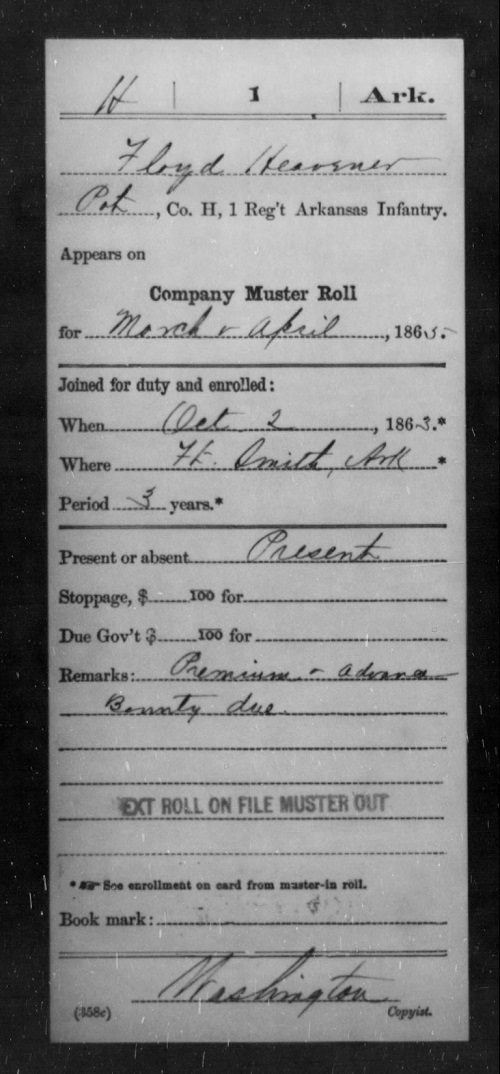 H | 1 | Ark.
Floyd Heavener
Pvt, Co. H, 1 Reg't Arkansas Infantry.
Appears on
Company Muster Roll
for March & April, 1865.
Joined for duty and enrolled:
When Oct 2, 1863.*
Where Ft. Smith, Ark *
Period 3 years.*
Present or absent Present
Stoppage, $ 100 for
Due Gov't $ 100 for
Remarks: Premium & advance
Bounty due.
EXT ROLL ON FILE MUSTER OUT
* See enrollment on card from muster-in roll.
Book mark:
Washington
(358c) Copyist.